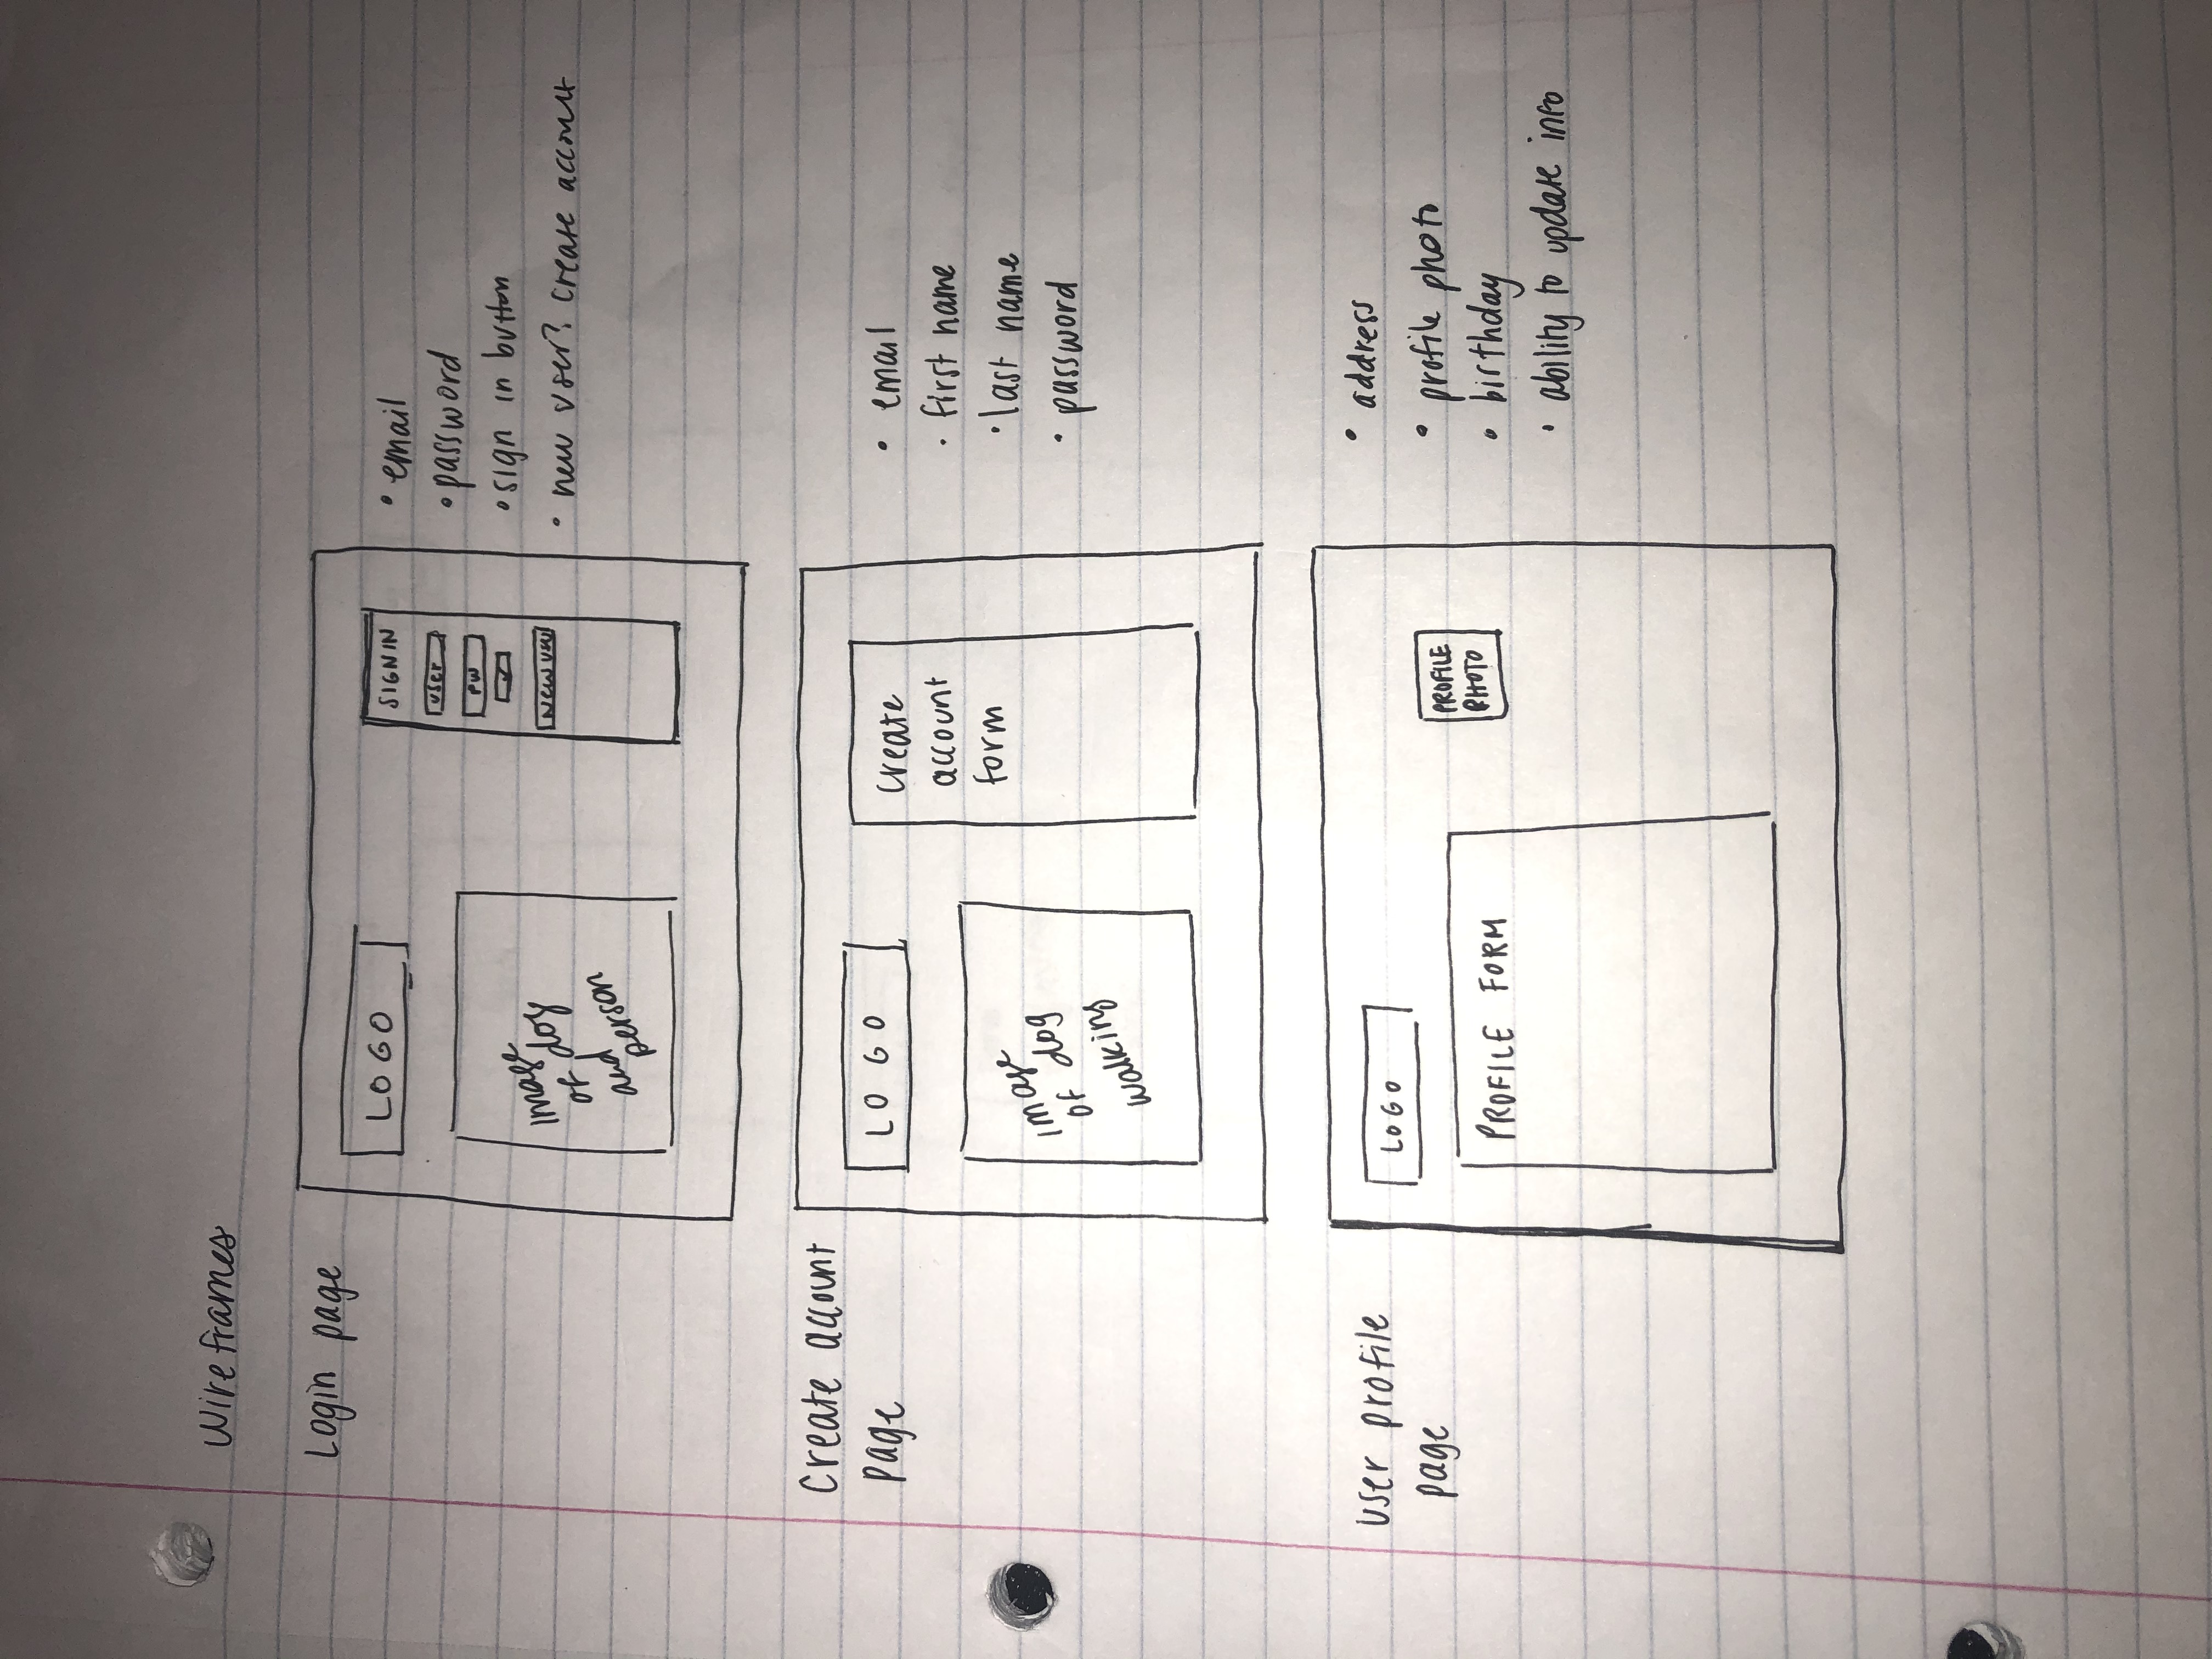 Wireframes
Login page
LOGO
image
of dog
and
person
SIGN IN
user
PW
NEW USER
• email
• password
• sign in button
• new user? create account
Create account
page
LOGO
image
of dog
walking
create
account
form
• email
• first name
• last name
• password
user profile
page
LOGO
PROFILE FORM
PROFILE
PHOTO
• address
• profile photo
• birthday
• ability to update info